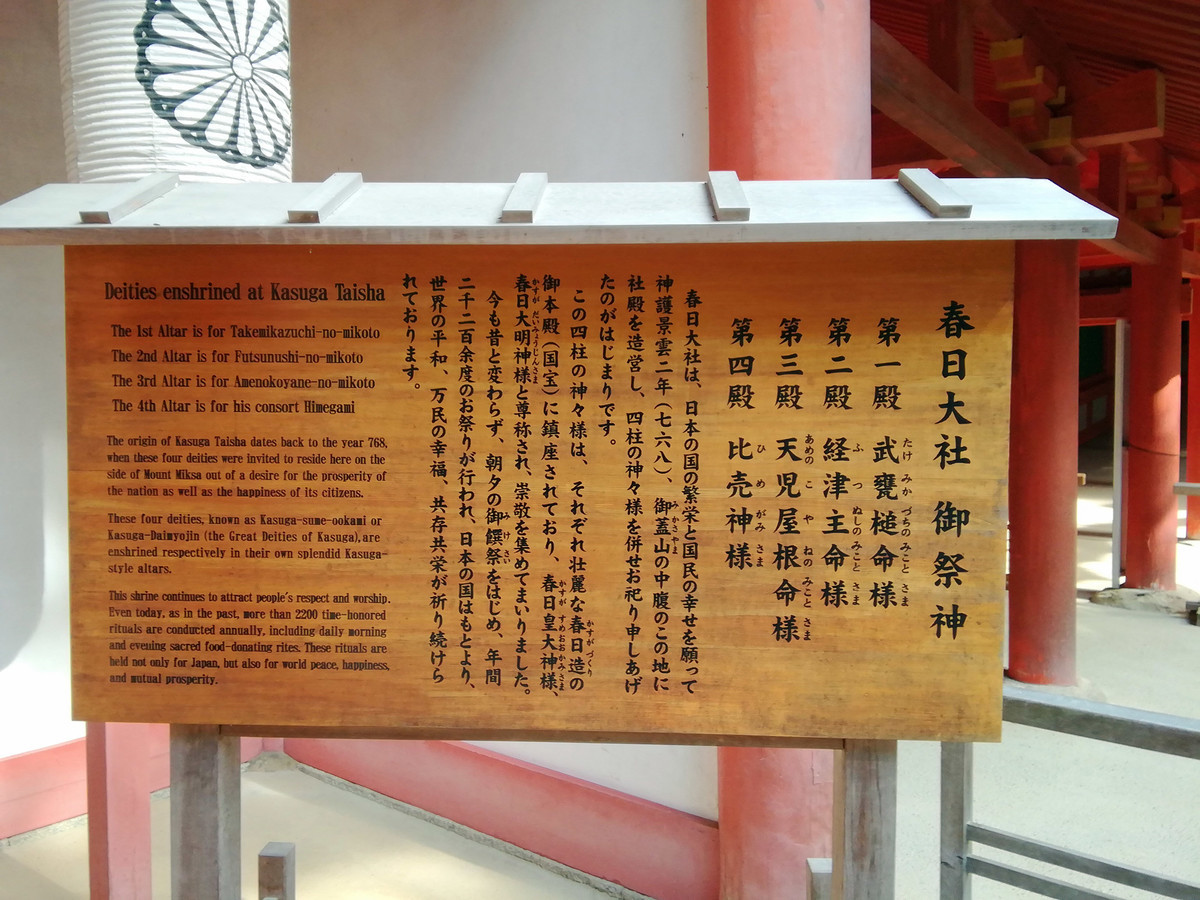 春日大社 御祭神
第一殿 武甕槌命様
たけ みか づちのみこと さま
第二殿 経津主命様
ふ つ ぬしのみこと さま
第三殿 天児屋根命様
あめの こ や ねの みこと さま
第四殿 比売神様
ひ め がみ さま
春日大社は、日本の国の繁栄と国民の幸せを願って
神護景雲二年（七六八）、御蓋山の中腹のこの地に
みかさやま
社殿を造営し、四柱の神々様を併せお祀り申しあげ
たのがはじまりです。
この四柱の神々様は、それぞれ壮麗な春日造の
かすがづくり
御本殿（国宝）に鎮座されており、春日皇大神様、
かすが すめおおかみさま
春日大明神様と尊称され、崇敬を集めてまいりました。
かすが だいみょうじんさま
今も昔と変わらず、朝夕の御饌祭をはじめ、年間
みけさい
二千二百余度のお祭りが行われ、日本の国はもとより、
世界の平和、万民の幸福、共存共栄が祈り続けら
れております。
Deities enshrined at Kasuga Taisha
The 1st Altar is for Takemikazuchi-no-mikoto
The 2nd Altar is for Futsunushi-no-mikoto
The 3rd Altar is for Amenokoyane-no-mikoto
The 4th Altar is for his consort Himegami
The origin of Kasuga Taisha dates back to the year 768,
when these four deities were invited to reside here on the
side of Mount Miksa out of a desire for the prosperity of
the nation as well as the happiness of its citizens.
These four deities, known as Kasuga-sume-ookami or
Kasuga-Daimyojin (the Great Deities of Kasuga),are
enshrined respectively in their own splendid Kasuga-
style altars.
This shrine continues to attract people's respect and worship.
Even today, as in the past, more than 2200 time-honored
rituals are conducted annually, including daily morning
and evening sacred food-donating rites. These rituals are
held not only for Japan, but also for world peace, happiness,
and mutual prosperity.